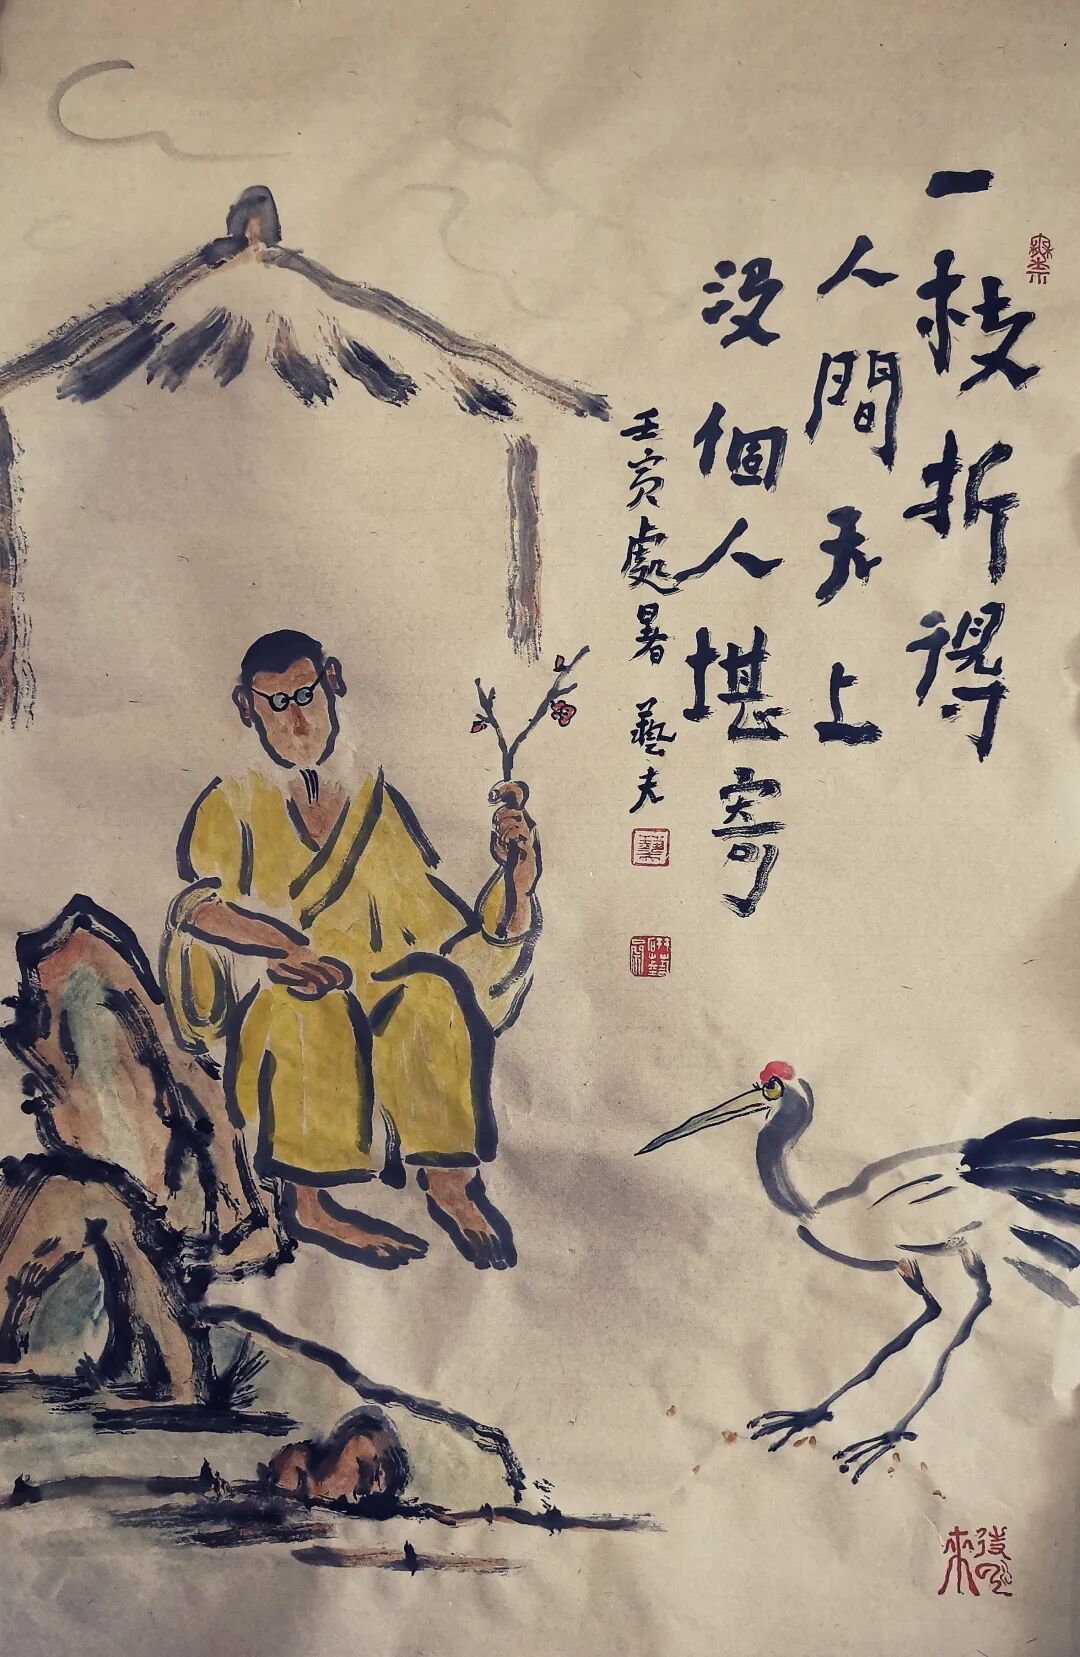 一枝折得
人間天上
沒個人堪寄
壬寅處暑 藝夫